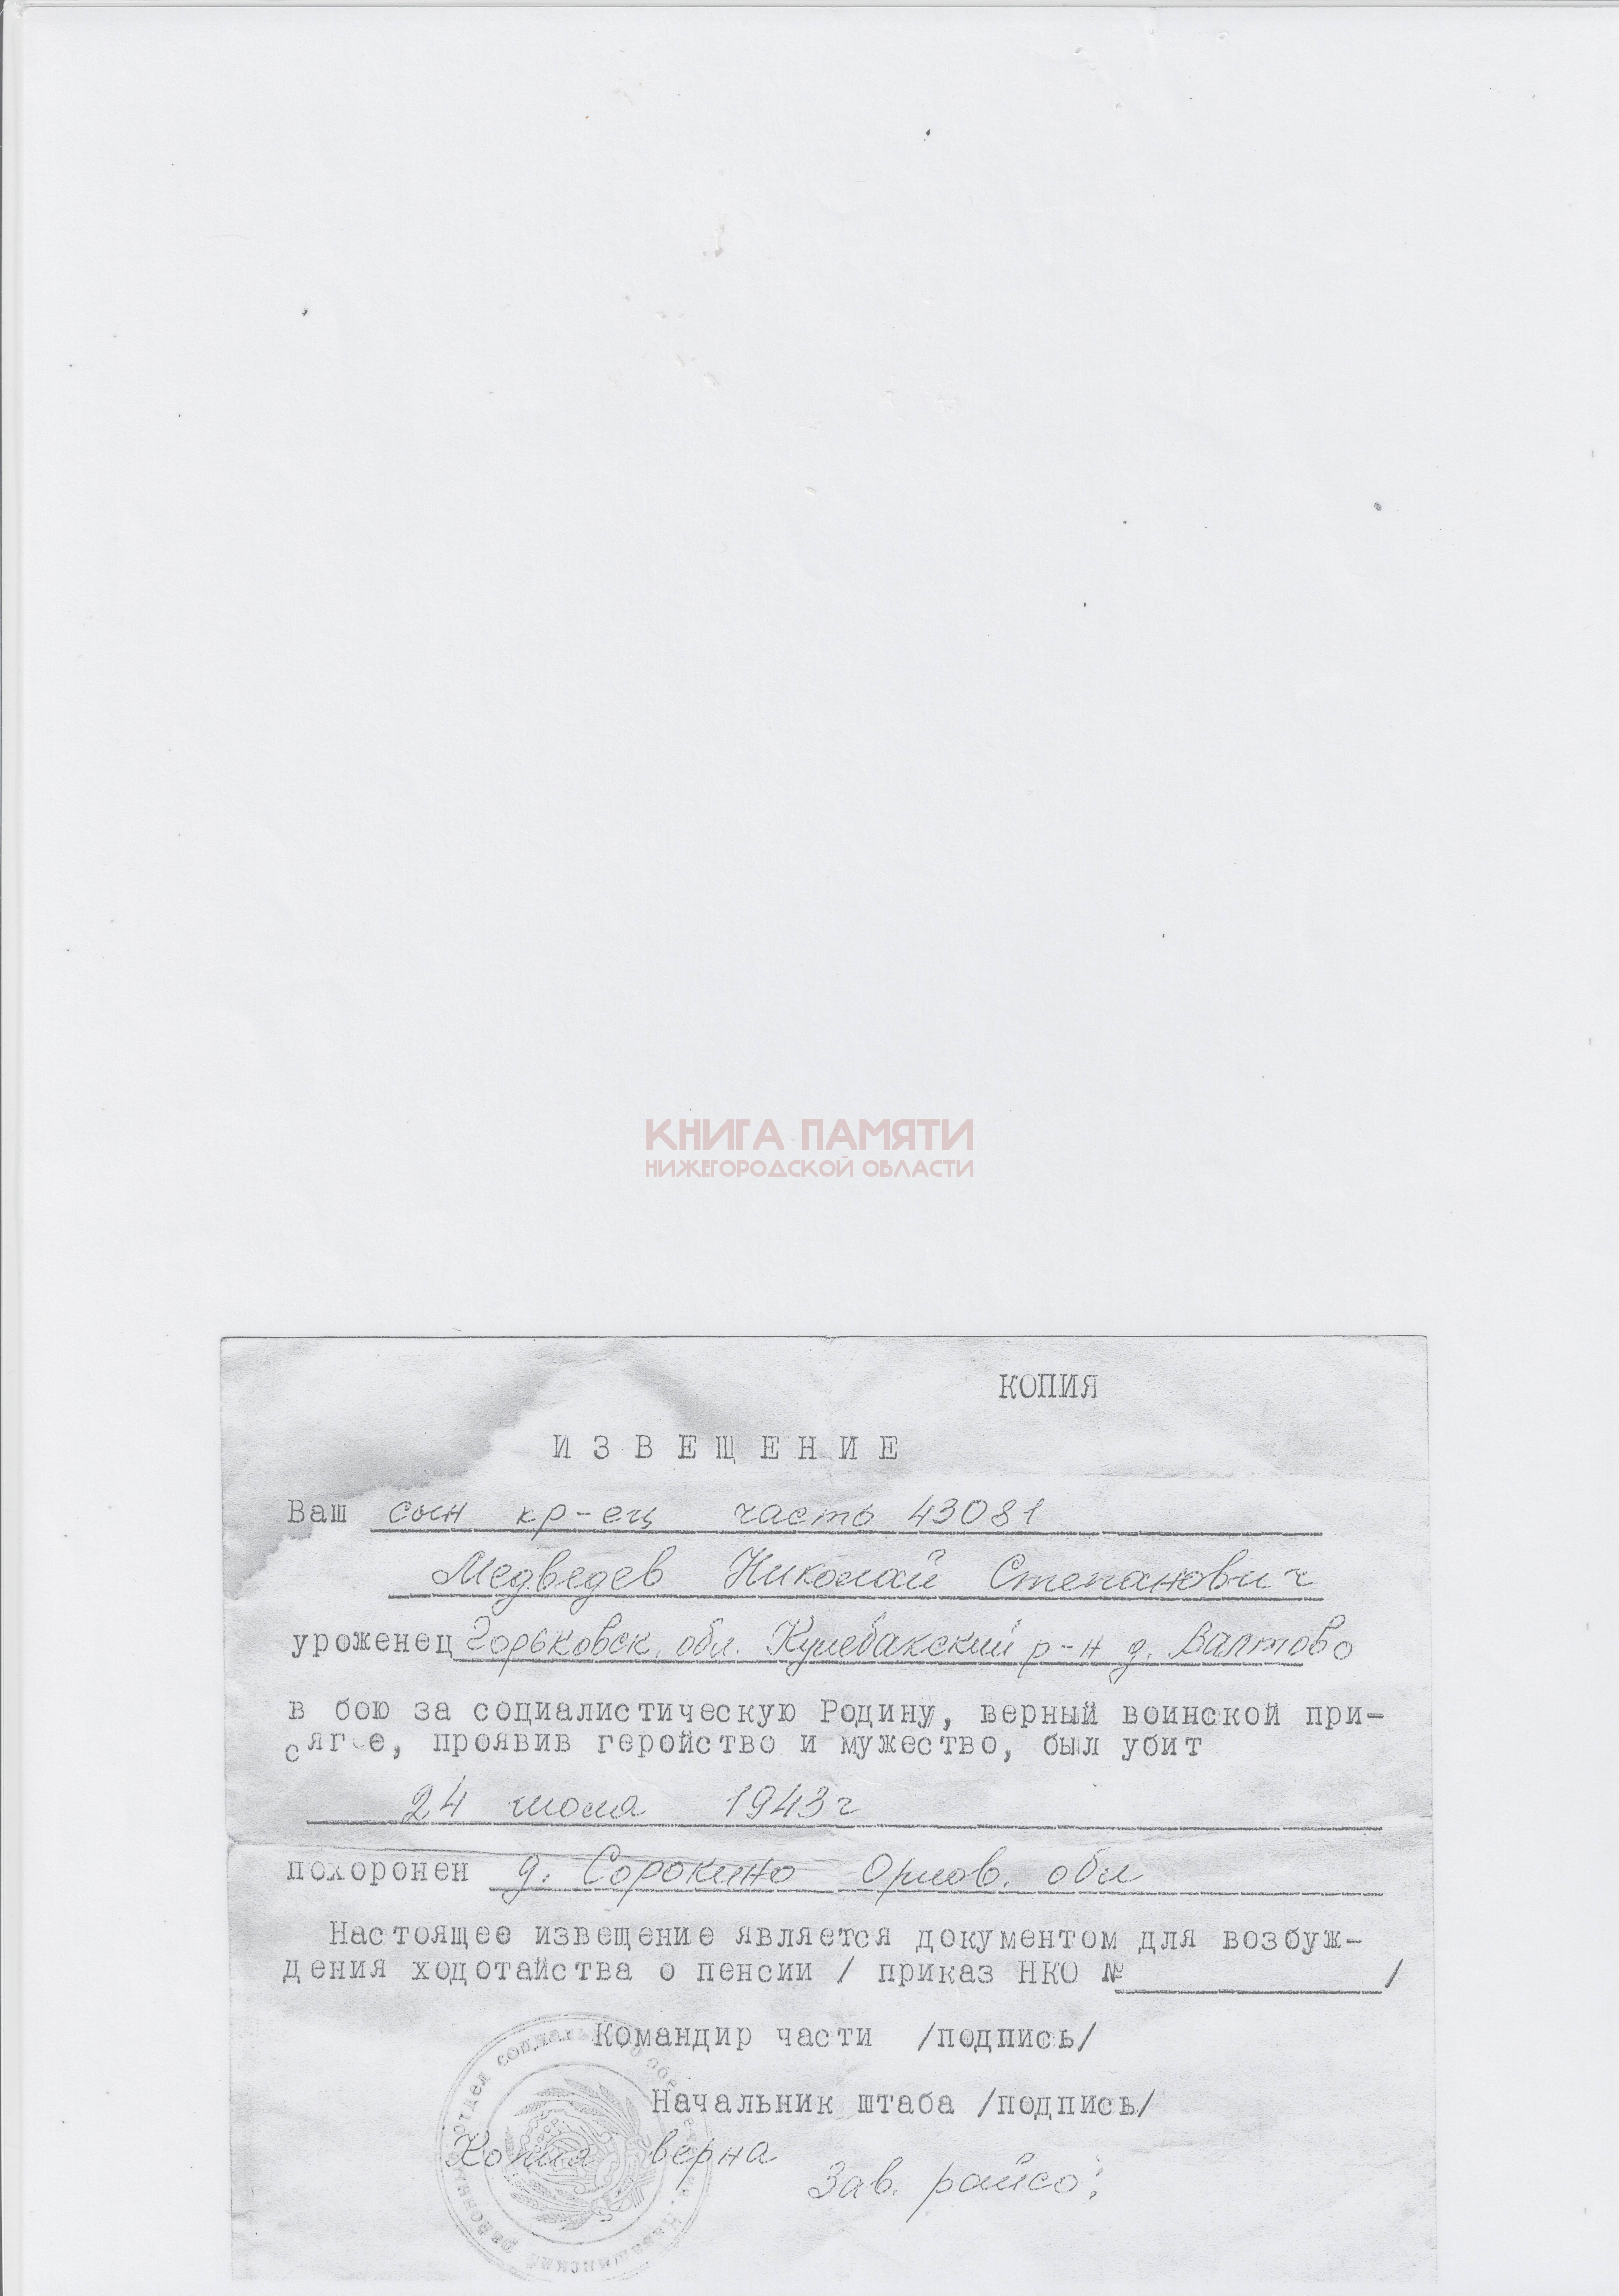 КНИГА ПАМЯТИ
НИЖЕГОРОДСКОЙ ОБЛАСТИ
КОПИЯ
ИЗВЕЩЕНИЕ
Ваш сын кр-ец часть 43081
Медведев Николай Степанович
уроженец Горьковск. обл. Кулебакский р-н д. Валтово
в бою за социалистическую Родину, верный воинской при-
сяге, проявив геройство и мужество, был убит
24 июля 1943г
похоронен д. Сорокино Орлов. обл
Настоящее извещение является документом для возбуж-
дения ходотайства о пенсии / приказ НКО № /
Командир части /подпись/
Начальник штаба /подпись/
Копия верна
Зав. райсо:
отдел